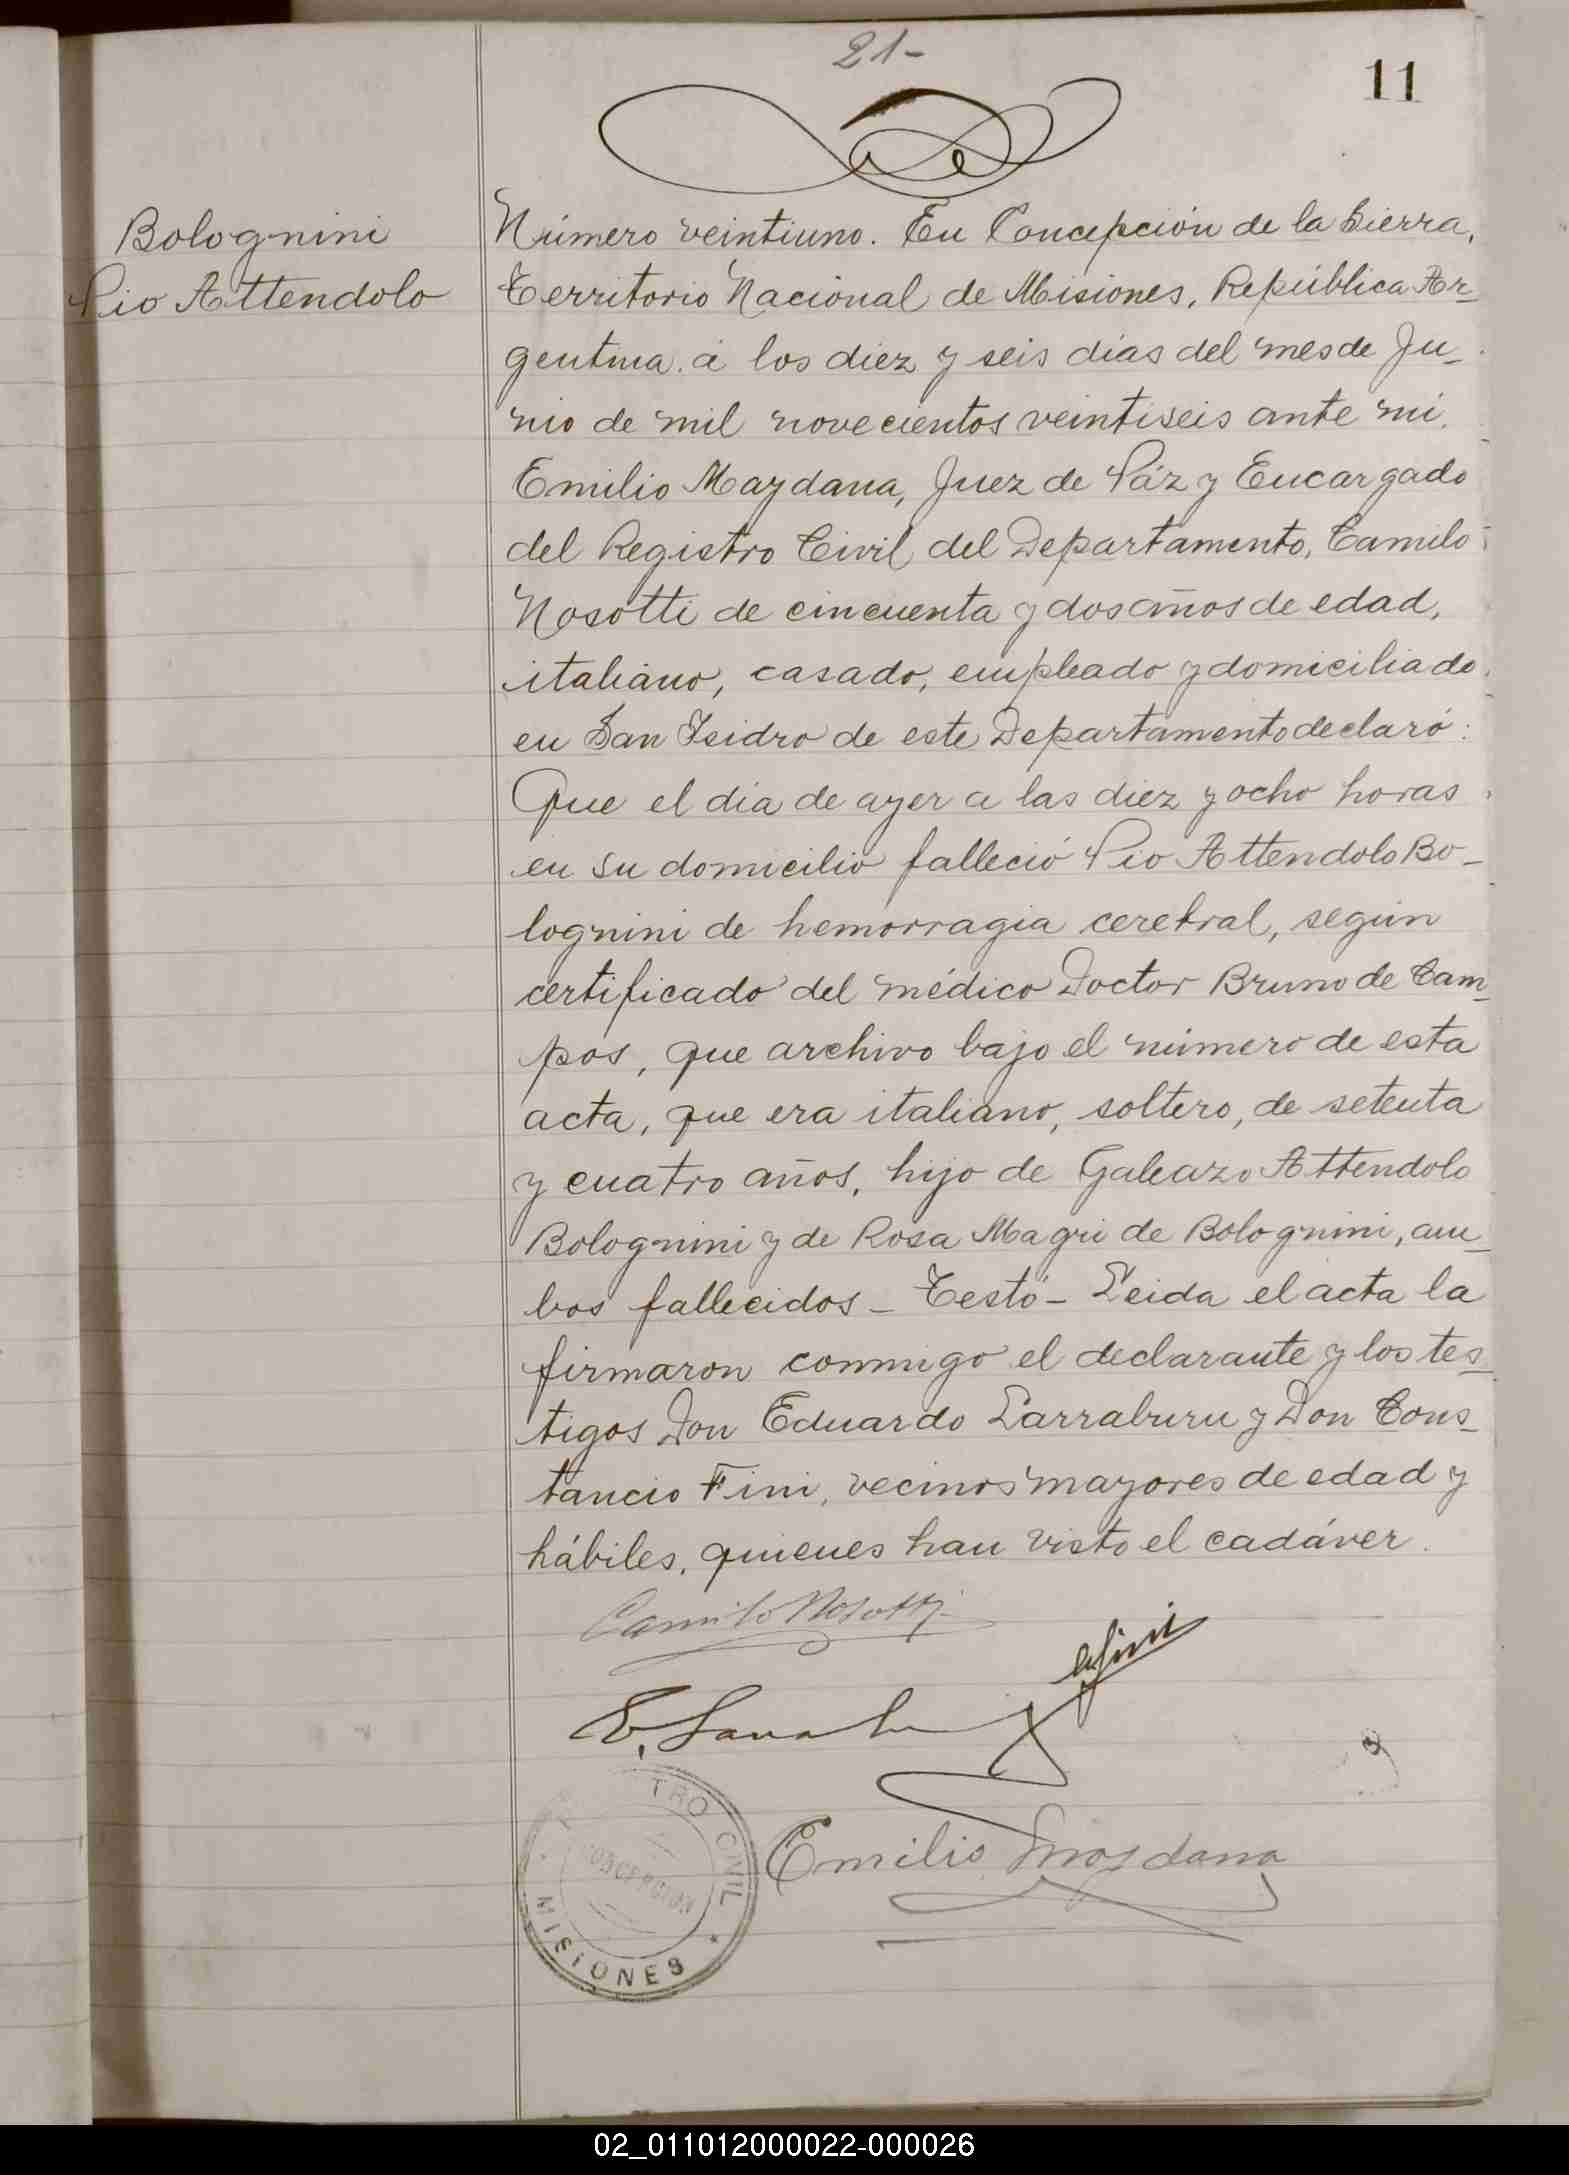 21-
11
Bolognini
Pio Attendolo
Número veintiuno. En Concepción de la Sierra,
Territorio Nacional de Misiones, República Ar-
gentina. á los diez y seis dias del mes de Ju-
nio de mil novecientos veintiseis ante mi.
Emilio Maydana, Juez de Páz y Encargado
del Registro Civil del Departamento, Camilo
Nosotti de cincuenta y dos años de edad,
italiano, casado, empleado y domiciliado
en San Isidro de este Departamento declaró:
Que el dia de ayer a las diez y ocho horas
en su domicilio falleció Pio Attendolo Bo-
lognini de hemorragia cerebral, según
certificado del médico Doctor Bruno de Cam-
pos, que archivo bajo el número de esta
acta, que era italiano, soltero, de setenta
y cuatro años, hijo de Galeazo Attendolo
Bolognini y de Rosa Magri de Bolognini, am-
bos fallecidos - Testó - Leida el acta la
firmaron conmigo el declarante y los tes-
tigos Don Eduardo Larraburu y Don Cons-
tancio Fini, vecinos mayores de edad y
hábiles, quienes han visto el cadáver.
Camilo Nosotti
CFini
E. Larrabu
Emilio Maydana
TRO CIVIL
CONCEPCION
MISIONES
02_011012000022-000026